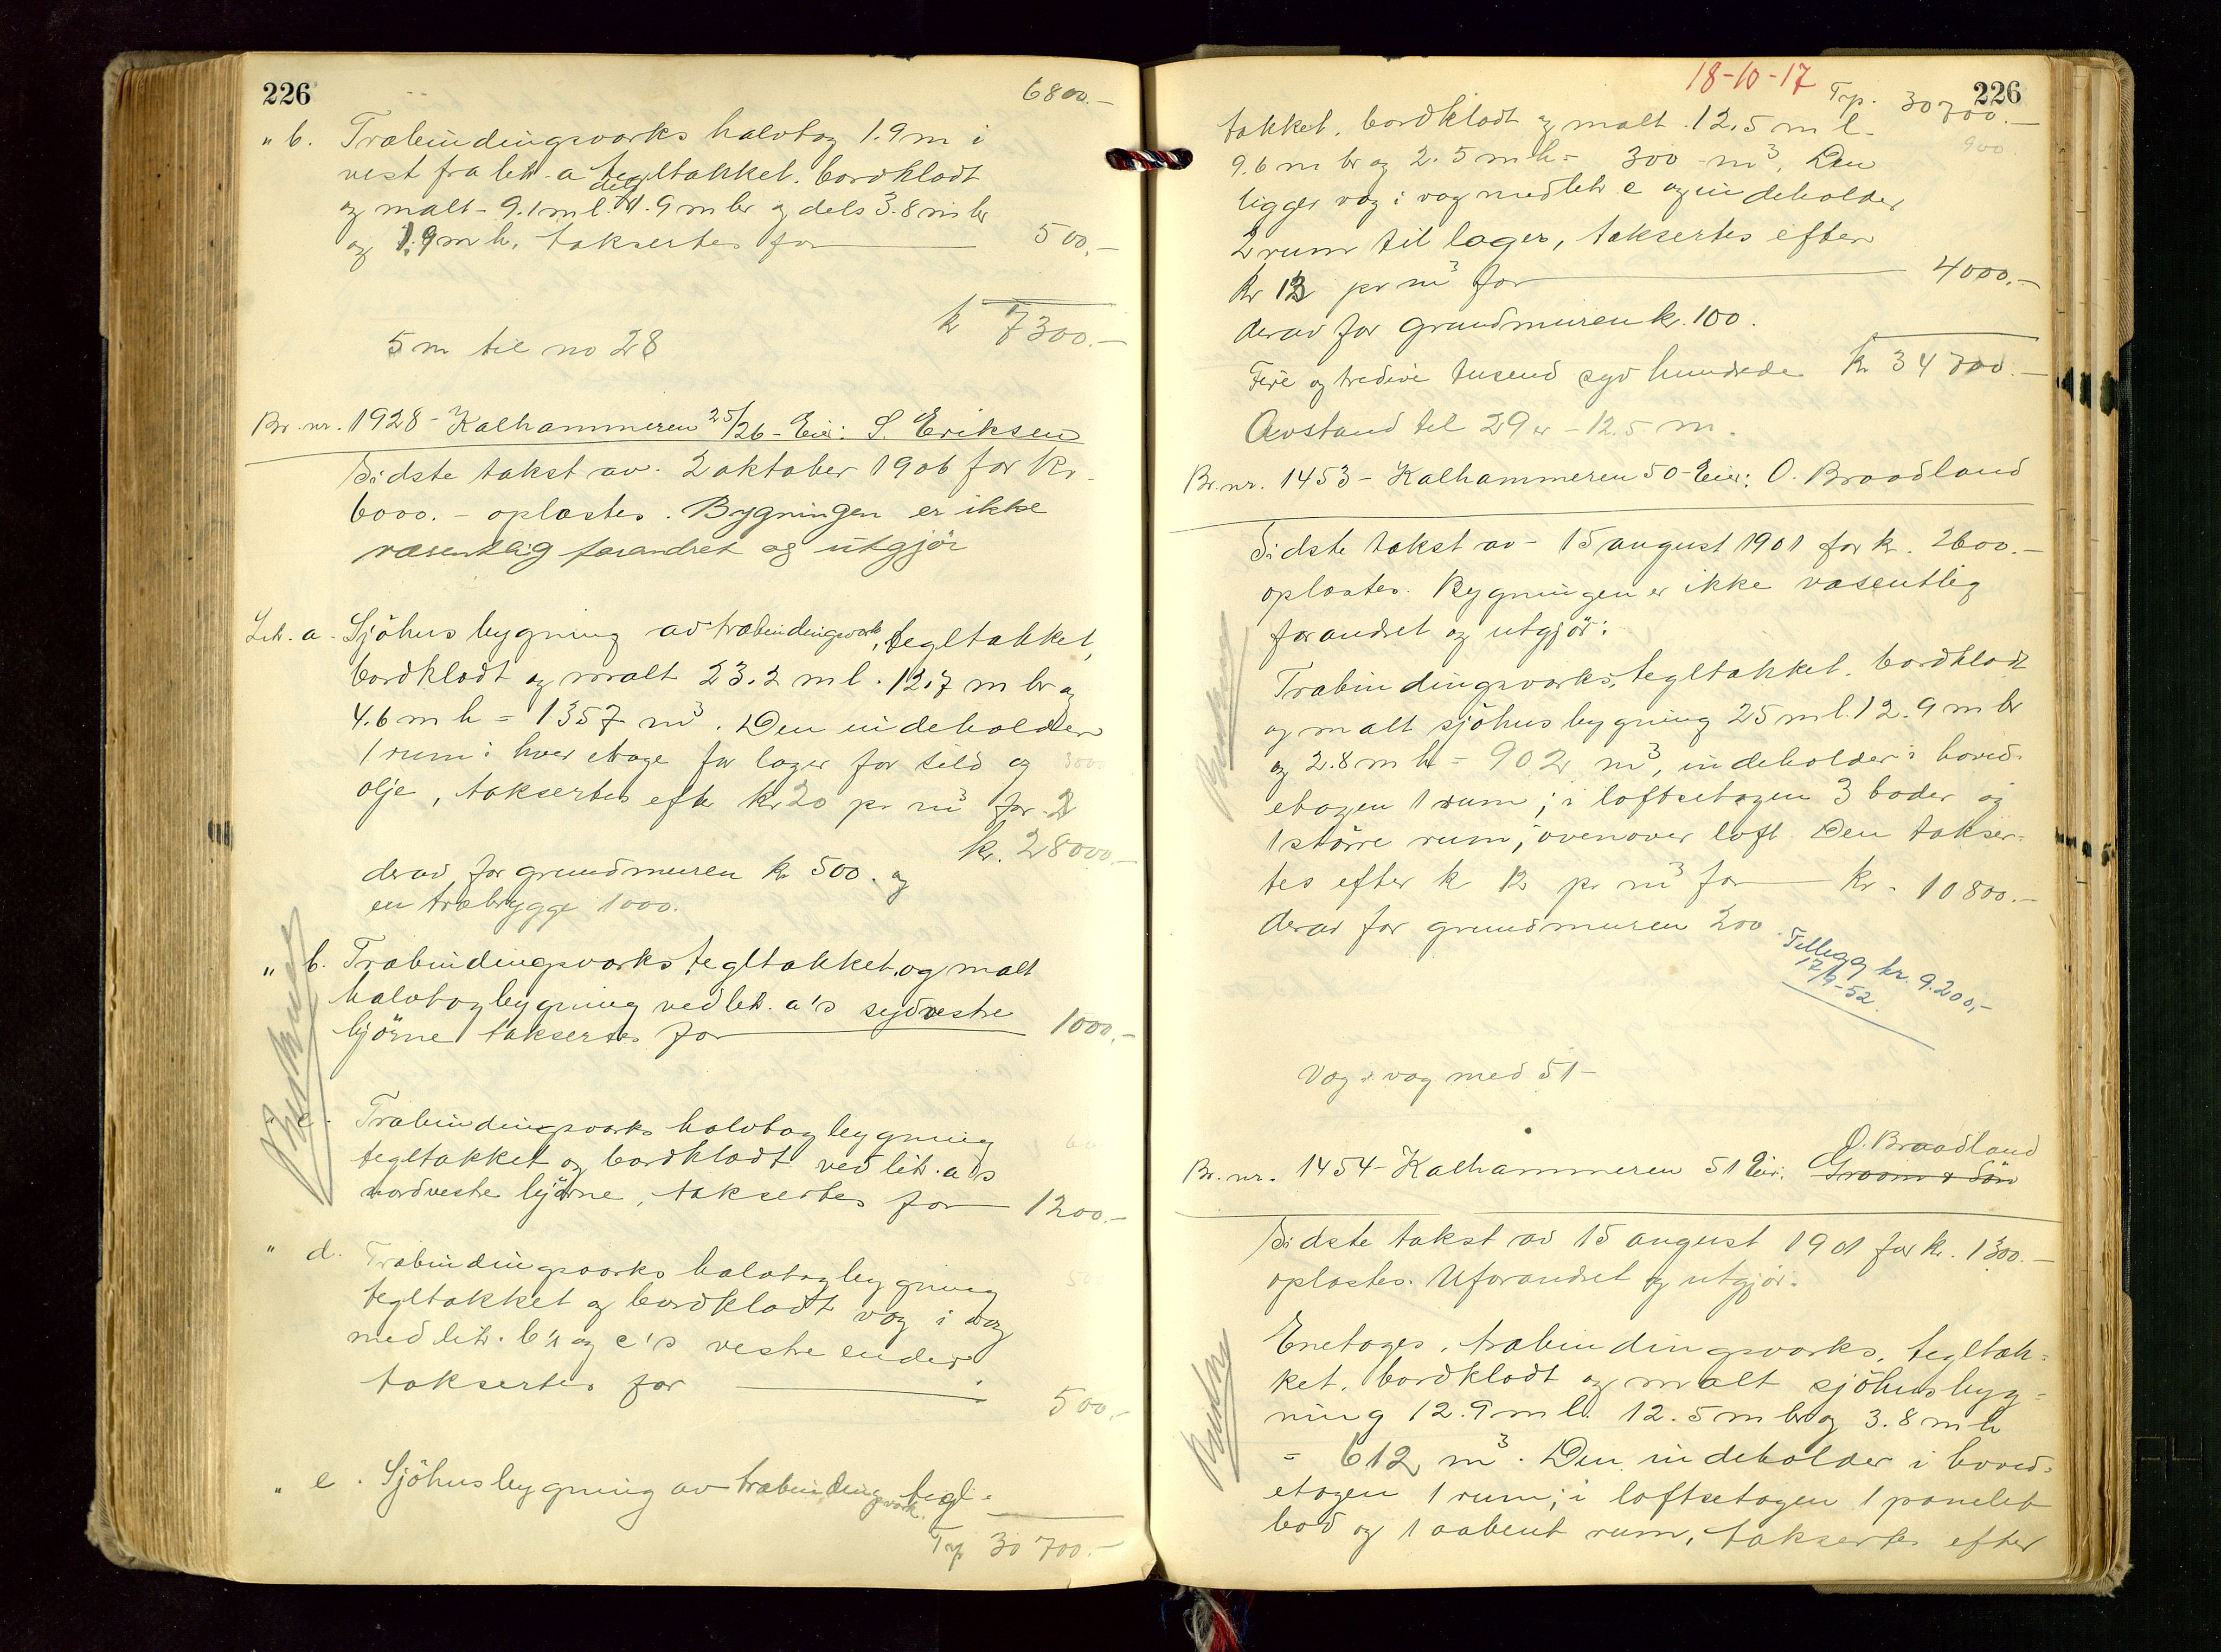 226
6800.-
" b. Træbindingsverks halvtag 1.9 m i
vest fra litr. a tegltækket. bordklædt
og malt - 9.1 m l. dels 1.9 m br og dels 3.8 m br
og 1.9 m h, taksertes for 500.-
k 7300.-
5 m til no 28
Br. nr. 1928 - Kalhammeren 25/26 - Eier: S. Eriksen
Sidste takst av 2 oktober 1906 for kr.
6000.- oplæstes. Bygningen er ikke
væsentlig forandret og utgjör
Litr. a. Sjöhusbygning av træbindingsverk, tegltækket,
bordklædt og malt 23.2 m l. 12.7 m br og
4.6 m h = 1357 m³. Den indeholder
1 rum i hver etage for lager for sild og
olje, taksertes efter kr 20 pr m³ for
kr. 28000.-
derav for grundmuren kr 500. og
en træbrygge 1000.
" b. Træbindingsverks, tegltækket, og malt
halvtagbygning ved litr. a's sydvestre
hjörne taksertes for 1000.-
" c. Træbindingsverks halvtagbygning
tegltækket og bordklædt ved litr. a's
nordvestre hjörne, taksertes for 1200.-
" d. Træbindingsverks halvtagbygning
tegltækket og bordklædt væg i væg
med litr. b's og c's vestre ender
taksertes for 500.-
" e. Sjöhusbygning av træbindingsverk. tegl-
Trp 30700.-
18-10-17
226
Trp. 30700.-
900.
tækket. bordklædt og malt. 12.5 m l.
9.6 m br og 2.5 m h = 300 m³. Den
ligger væg i væg med litr c og indeholder
2 rum til lager, taksertes efter
kr 13 pr m³ for 4000.-
derav for grundmuren kr. 100.
Fire og tredive tusend syv hundrede kr 34700.-
Avstand til 29 er - 12.5 m.
Br. nr. 1453 - Kalhammeren 50 - Eier: O. Braadland
Sidste takst av 15 august 1901 for kr. 2600.-
oplæstes. Bygningen er ikke væsentlig
forandret og utgjör:
Træbindingsverks, tegltækket. bordklædt
og malt sjöhusbygning 25 m l. 12.9 m br
og 2.8 m h = 902 m³, indeholder i hoved-
etagen 1 rum; i loftsetagen 3 boder og
1 större rum, ovenover loft. Den takser-
tes efter kr 12 pr m³ for kr. 10800.-
derav for grundmuren 200.
Tillegg kr. 9.200,-
17/9-52.
Væg i væg med 51 -
O. Braadland
Br. nr. 1454 - Kalhammeren 51 Eier: Groom & Sön
Sidste takst av 15 august 1901 for kr. 1300.-
oplæstes. Uforandret og utgjör:
Enetages, træbindingsverks, tegltæk-
ket. bordklædt og malt sjöhusbyg-
ning 12.9 m l. 12.5 m br og 3.8 m h
= 612 m³. Den indeholder i hoved-
etagen 1 rum; i loftsetagen 1 panelet
bod og 1 aabent rum, taksertes efter